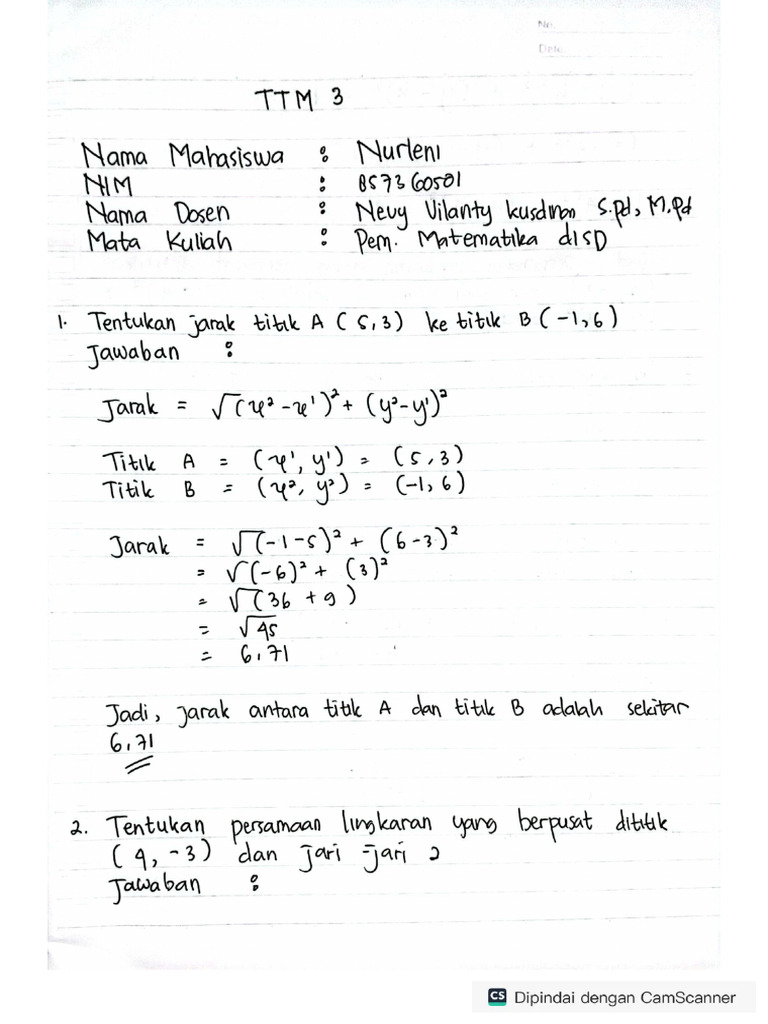 No.
Date.
TTM 3
Nama Mahasiswa : Nurleni
NIM : 857360501
Nama Dosen : Nevy Vilanty kusdinan S.pd, M.pd
Mata Kuliah : Pem. Matematika diSD
1. Tentukan jarak titik A (5,3) ke titik B (-1,6)
Jawaban :
Jarak = √(x²-x¹)² + (y²-y¹)²
Titik A = (x¹, y¹) = (5,3)
Titik B = (x², y²) = (-1,6)
Jarak = √(-1-5)² + (6-3)²
= √(-6)² + (3)²
= √(36 + 9)
= √45
= 6,71
Jadi, jarak antara titik A dan titik B adalah sekitar
6,71
2. Tentukan persamaan lingkaran yang berpusat dititik
(4, -3) dan jari-jari 2
Jawaban :
CS Dipindai dengan CamScanner